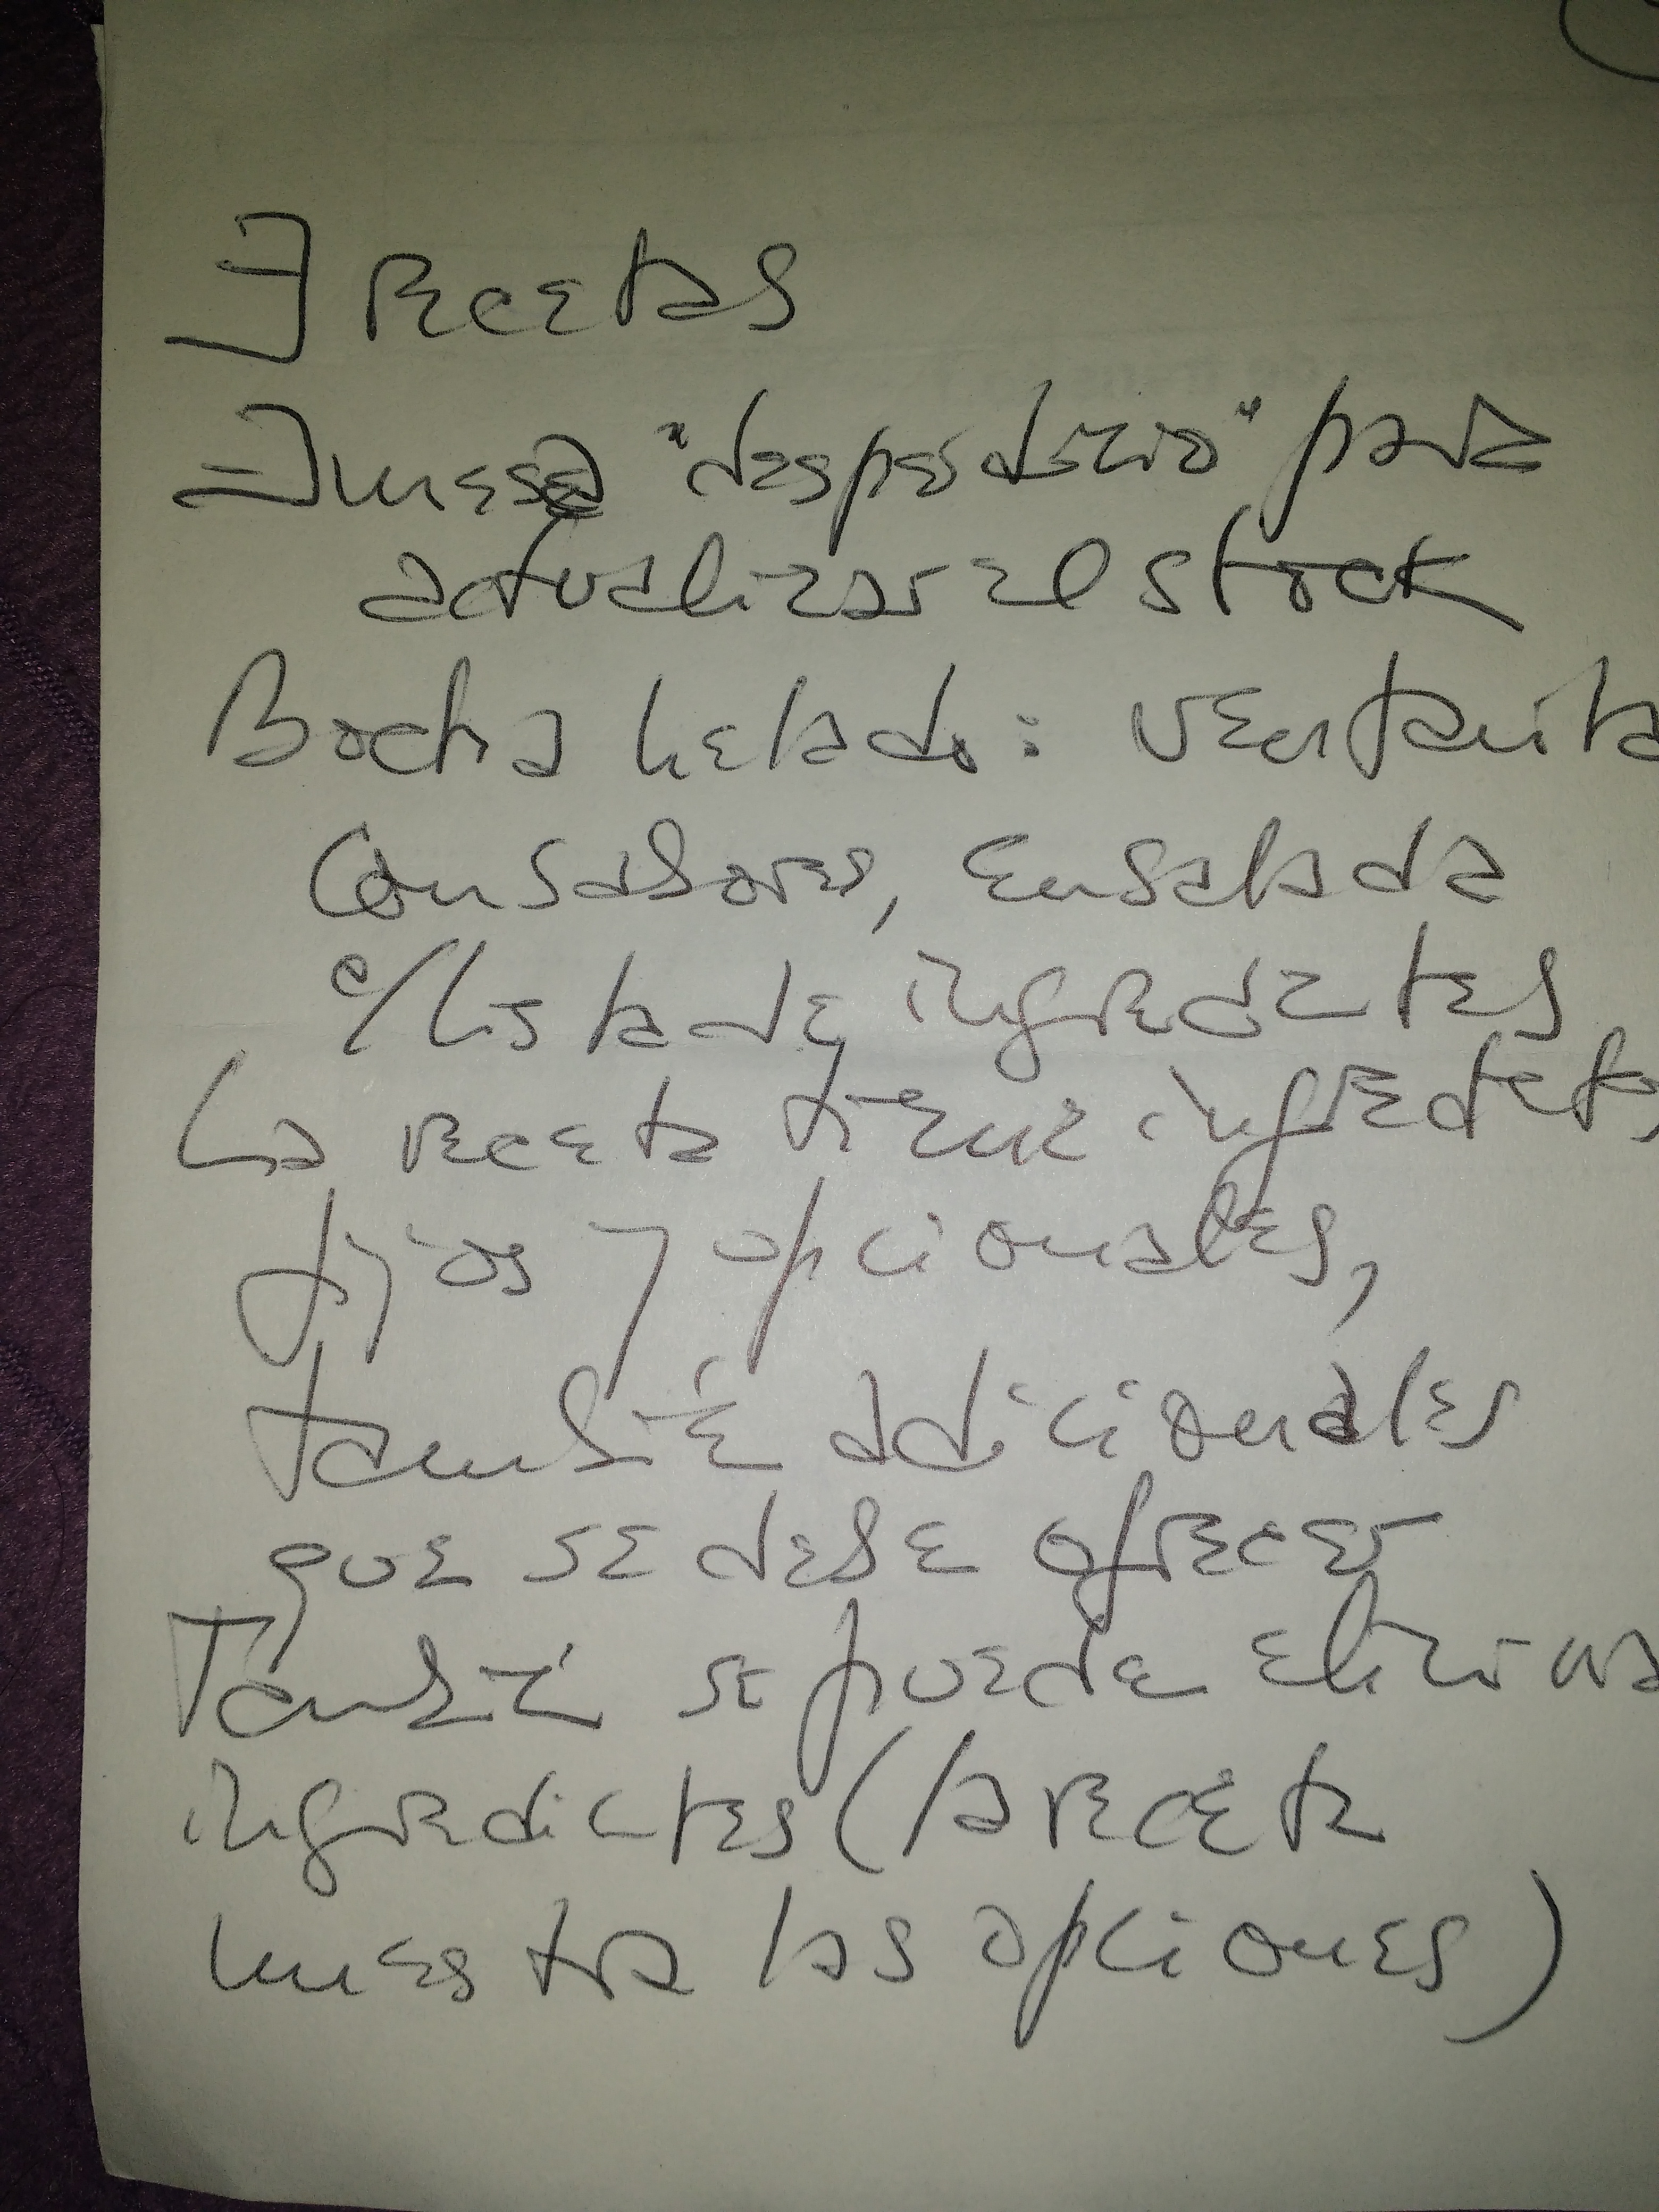 ∃ Recetas
∃ mesa "desperdicio" para
actualizar el stock
Bocha helado: ventanita
Con sabores, Ensalada
c/lista de ingredientes
La receta tiene ingredientes
fijos y opcionales,
también adicionales
que se debe ofrecer
También se puede eliminar
ingredientes (la receta
muestra las opciones)